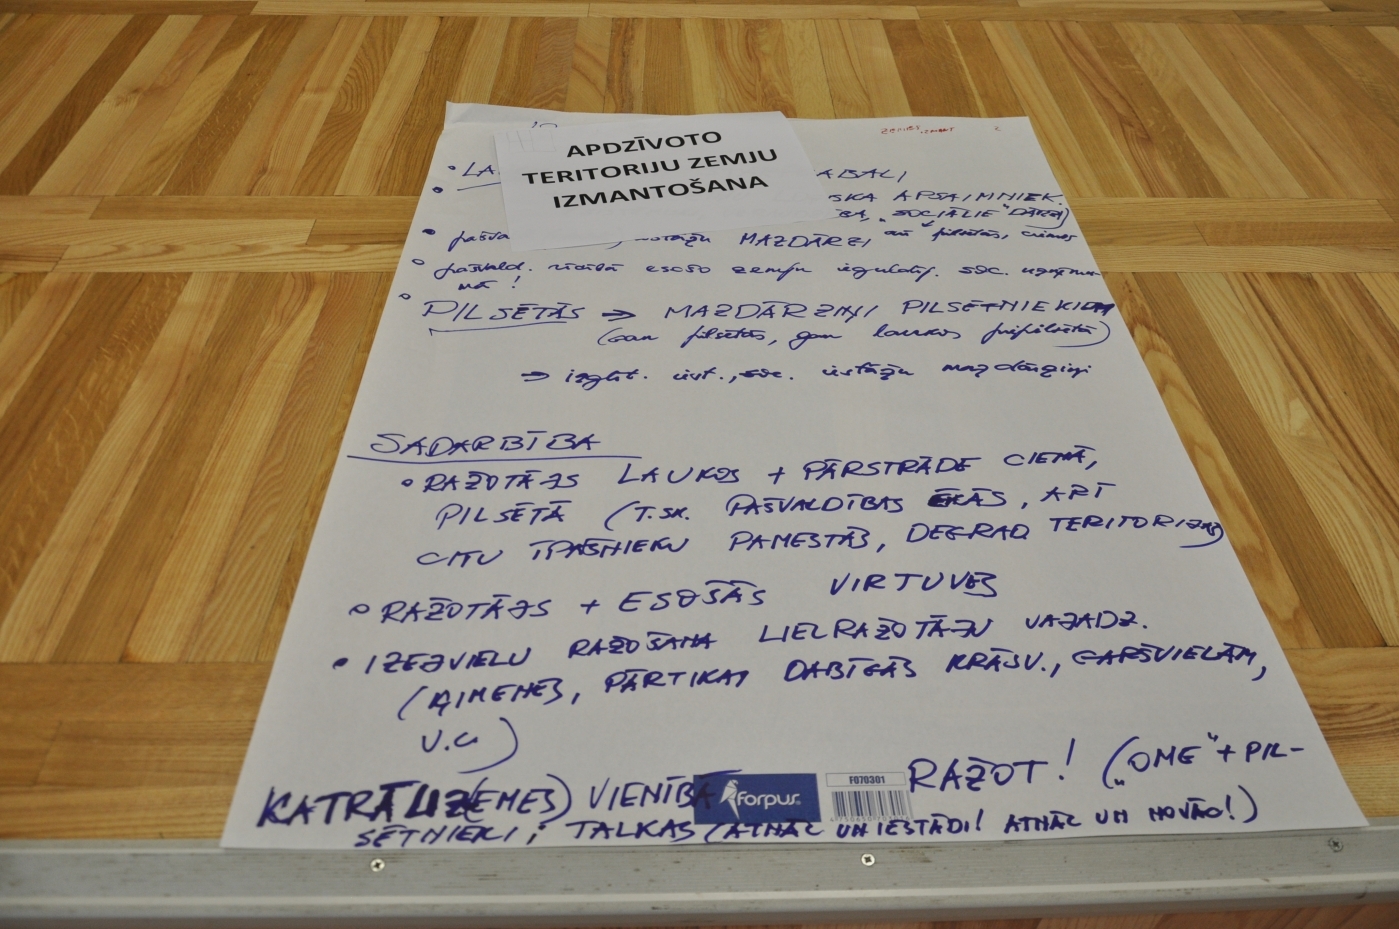 APDZĪVOTO
TERITORIJU ZEMJU
IZMANTOŠANA
ABALI
SKA APSAIMNIEK.
BA, "SOCIĀLIE" DĀRZI)
MAZDĀRZI arī pilsētās, ciemos
pašvald. rīcībā esošo zemju
PILSĒTĀS → MAZDĀRZIŅI PILSĒTNIEKIEM
(gan pilsētās, gan laukos pilsētā)
→ izglīt. iest., soc. iestāžu mazdārziņi
SADARBĪBA
• RAŽOTĀJS LAUKOS + PĀRSTRĀDE CIEMĀ,
PILSĒTĀ (T.SK. PAŠVALDĪBAS ĒKĀS, ARĪ
CITU ĪPAŠNIEKU PAMESTĀS, DEGRAD TERITORIJĀS)
• RAŽOTĀJS + ESOŠĀS VIRTUVES
• IZEJVIELU RAŽOŠANA LIELRAŽOTĀJU VAJADZ.
(ĢIMENES, PĀRTIKAI DABĪGĀS KRĀSV., GARŠVIELĀM,
U.C.)
KATRĀ UZ(EMES) VIENĪBĀ RAŽOT! ("OME" + PIL-
SĒTNIEKI; TALKAS (ATNĀC UN IESTĀDI! ATNĀC UN NOVĀC!)
forpus
F070301